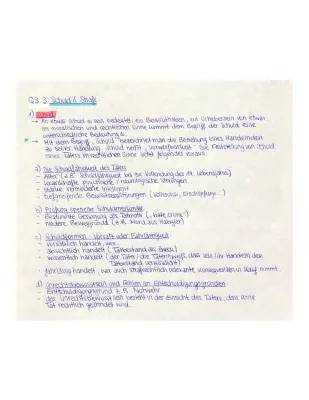 Q3.3 Schuld & Strafe
1) Schuld
→ An etwas Schuld zu sein bedeutet, ein Bewusstsein, ein Urheber sein von etwas
im moralischen und rechtlichen Sinne kommt dem Begriff der Schuld eine
unterschiedliche Bedeutung zu
→ Mit dem Begriff "Schuld" bezeichnet man die Beziehung eines Handelnden
zu seiner Handlung. Schuld heißt "Vorwerfbarkeit". Die Feststellung von Schuld
eines Täters im rechtlichen Sinne setzt folgendes voraus:
a) Die Schuldfähigkeit des Täters
- Alter (z.B. Schuldunfähigkeit bis zur Vollendung des 14. Lebensjahres)
- krankhafte psychische / neurologische Störungen
- starke verminderte Intelligenz
- tiefgreifende Bewusstseinsstörungen (Vollrausch,
b) Prüfung spezieller Schuldmerkmale
- Bestimmte Gesinnung des Tatmotivs ("hate crime")
- niedere Beweggründe (z.B. Mord aus Habgier)
c) Schuldformen - Vorsatz oder Fahrlässigkeit
- vorsätzlich handelt, wer...
- absichtlich handelt (Tatbestand als Zweck)
- wissentlich handelt (der Täter / die Täterin weiß, dass sein / ihr Handeln den
Tatbestand verwirklicht)
- fahrlässig handelt, wer auch strafrechtlich relevante Konsequenzen in Kauf nimmt
d) Unrechtsbewusstsein und Fehlen an Entschuldigungsgründen
- Entschuldigungsgrund z.B. Notwehr
- der Unrechtsbewusstsein besteht in der Einsicht des Täters, dass seine
Tat rechtlich geahndet wird.